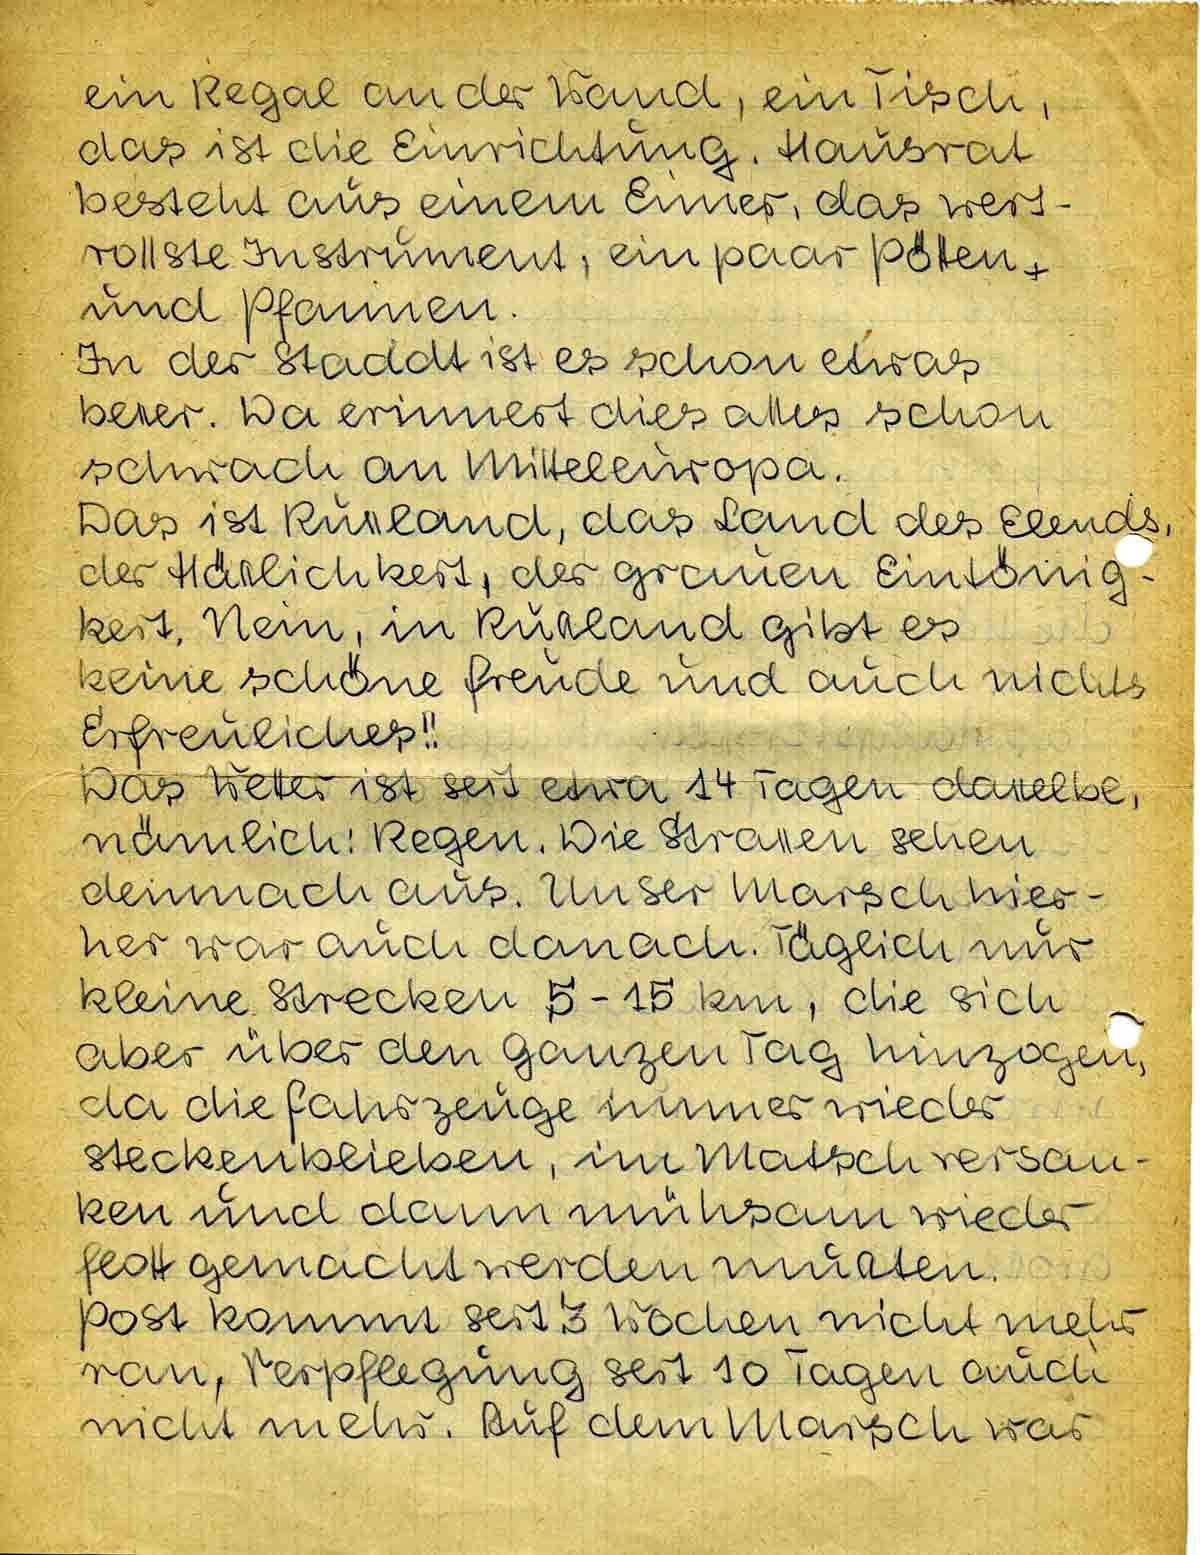 ein Regal an der Wand, ein Tisch,
das ist die Einrichtung. Hausrat
besteht aus einem Eimer, das wert-
vollste Instrument, ein paar Pötten +
und Pfannen.
In der Staddt ist es schon etwas
besser. Da erinnert dies alles schon
schwach an Mitteleuropa.
Das ist Russland, das Land des Elends,
der Hässlichkeit, der grauen Eintönig-
keit. Nein, in Russland gibt es
keine schöne Freude und auch nichts
Erfreuliches!!
Das Wetter ist seit etwa 14 Tagen dasselbe,
nämlich: Regen. Die Strassen sehen
demnach aus. Unser Marsch hier-
her war auch danach. Täglich nur
kleine Strecken 5 - 15 km, die sich
aber über den ganzen Tag hinzogen,
da die Fahrzeuge immer wieder
steckenblieben, im Matsch versan-
ken und dann mühsam wieder
flott gemacht werden mussten.
Post kommt seit 3 Wochen nicht mehr
ran, Verpflegung seit 10 Tagen auch
nicht mehr. Auf dem Marsch war